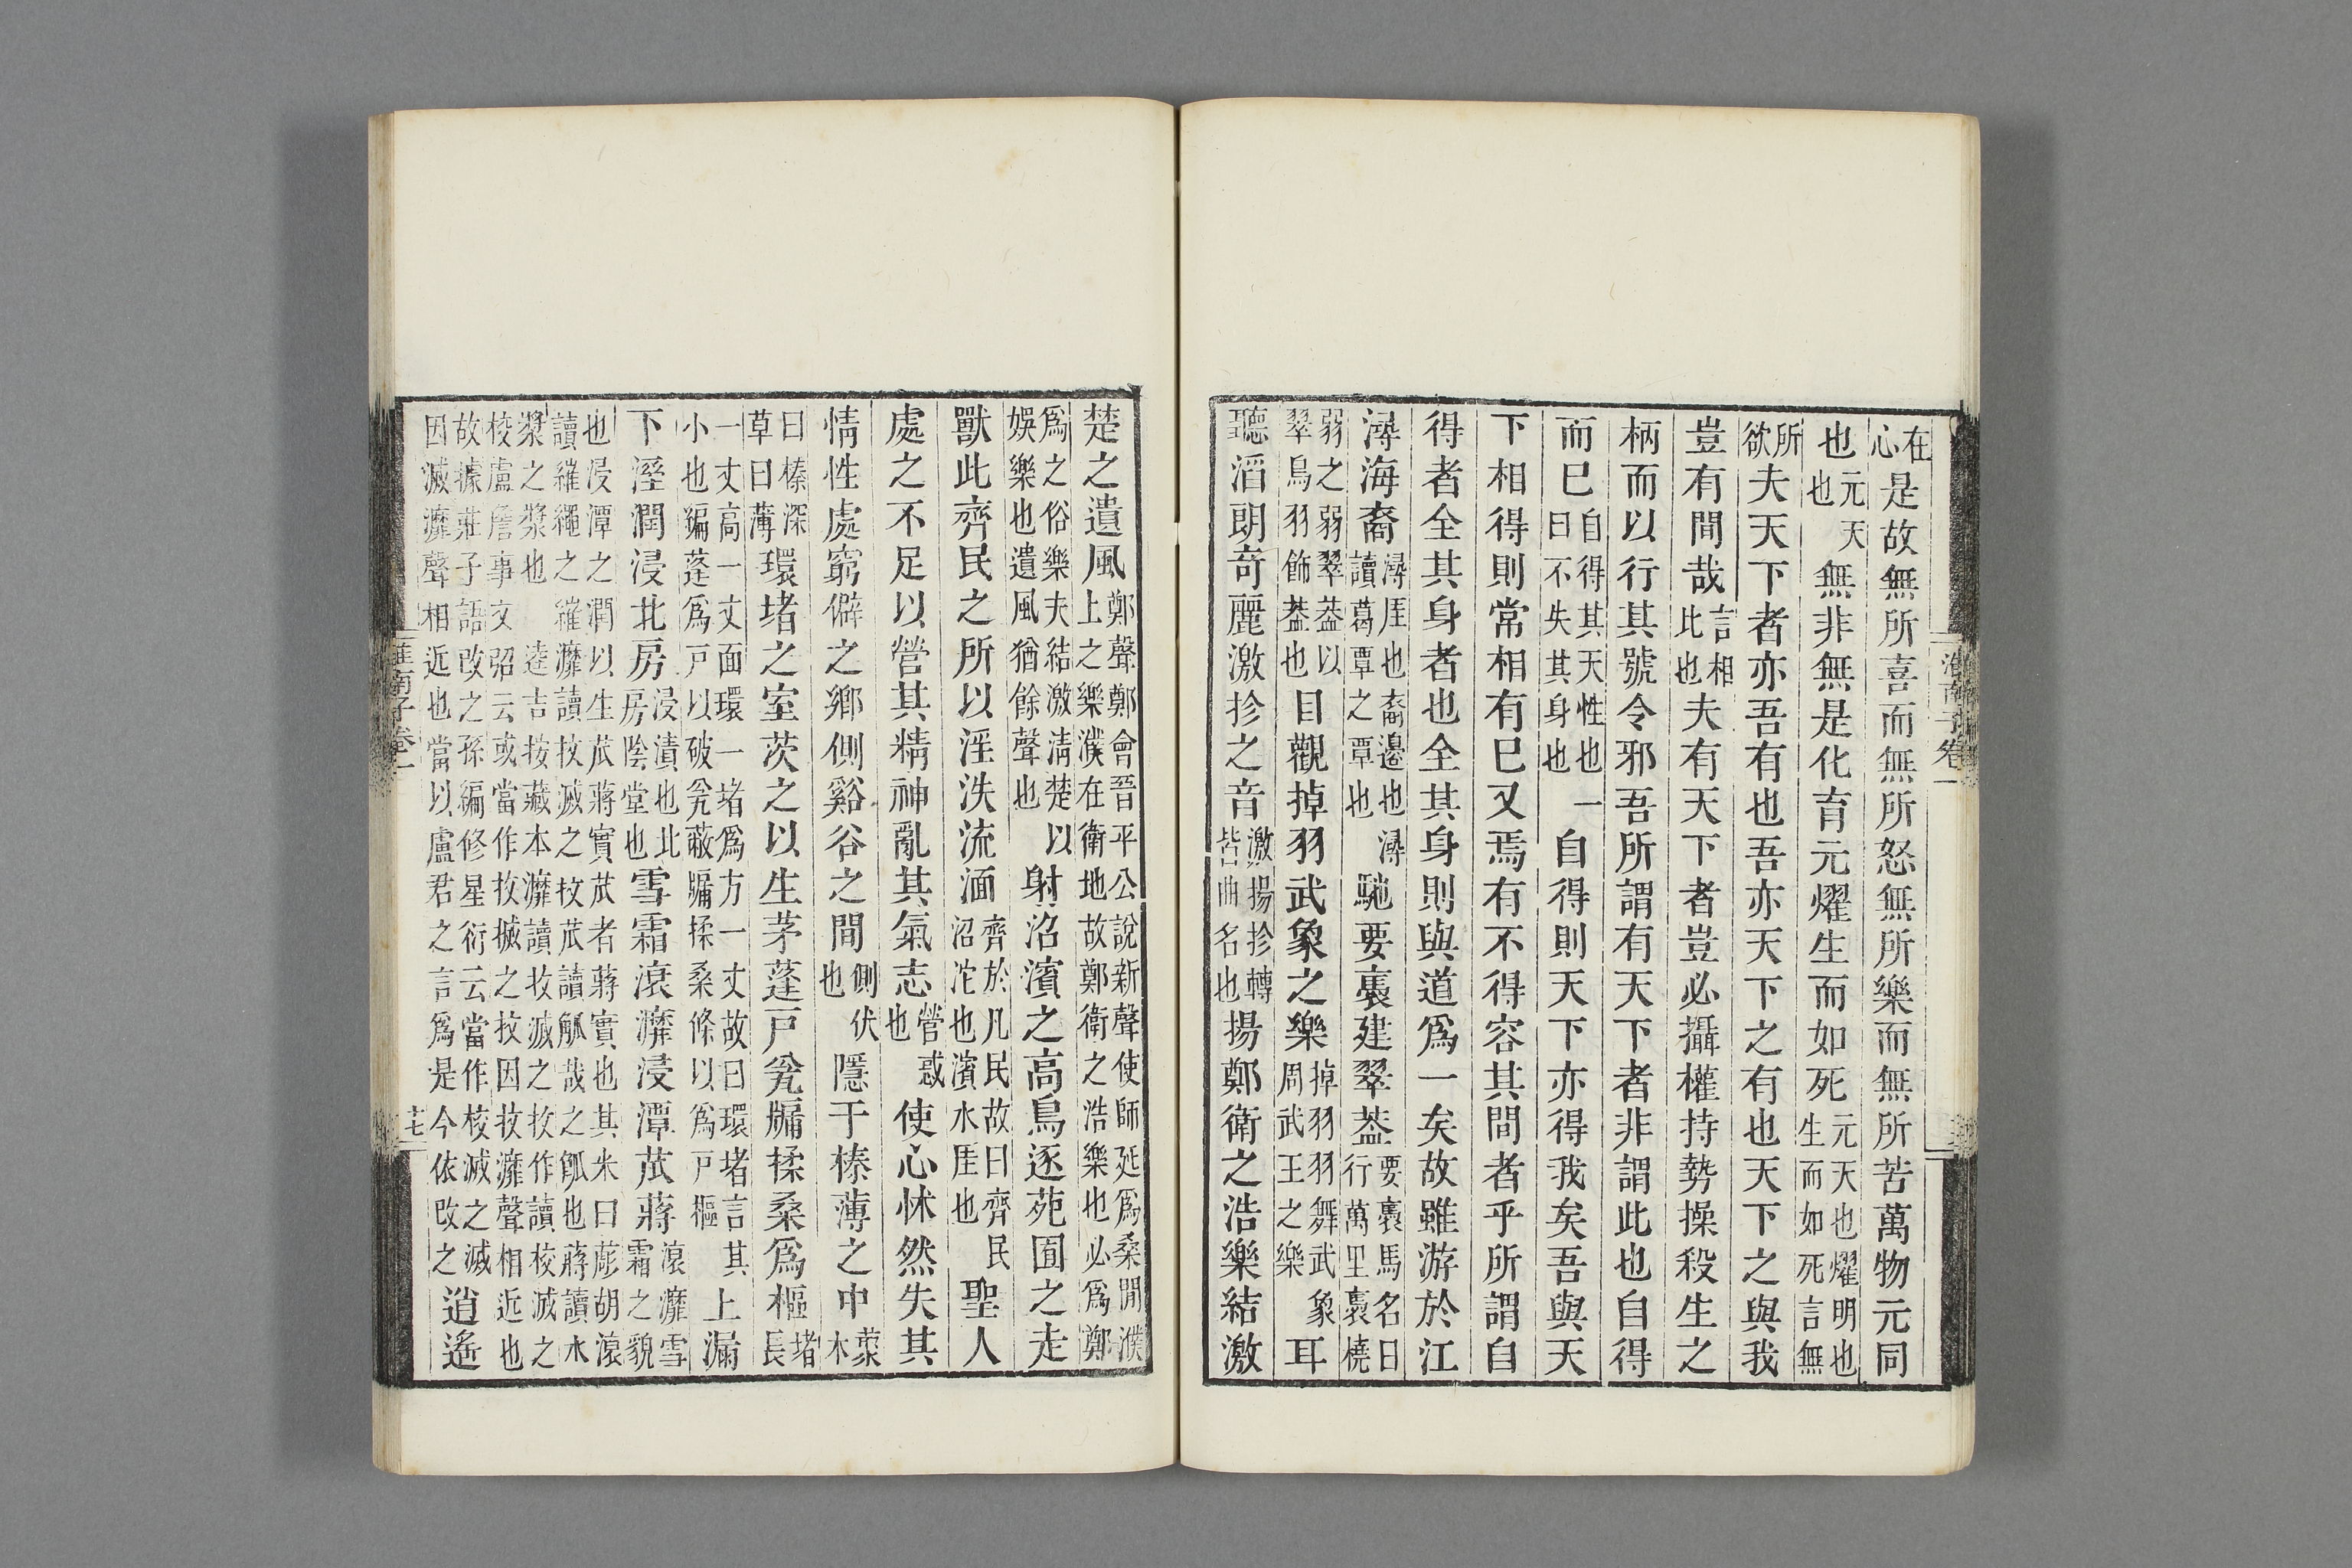 在心是故無所喜而無所怒無所樂而無所苦萬物元同
也元天也無非無是化育元燿生而如死元天也燿明也生而如死言無
所欲夫天下者亦吾有也吾亦天下之有也天下之與我
豈有間哉言相此也夫有天下者豈必攝權持勢操殺生之
柄而以行其號令邪吾所謂有天下者非謂此也自得
而巳自得其天性也一曰不失其身也自得則天下亦得我矣吾與天
下相得則常相有巳又焉有不得容其間者乎所謂自
得者全其身者也全其身則與道爲一矣故雖游於江
潯海裔潯厓也裔邊也潯讀葛覃之覃也馳要褭建翠葢要褭馬名日行萬里褭橈
弱之弱翠葢以翠鳥羽飾葢也目觀掉羽武象之樂掉羽羽舞武象周武王之樂耳
聽滔朗奇麗激抮之音激揚抮轉皆曲名也揚鄭衛之浩樂結激
淮南子卷一
楚之遺風鄭聲鄭會晉平公說新聲使師延爲桑閒濮上之樂濮在衛地故鄭衛之浩樂也必爲鄭
爲之俗樂夫結激淸楚娛樂也遺風猶餘聲也以射沼濱之高鳥逐苑囿之走
獸此齊民之所以淫泆流湎齊於凡民故曰齊民沼沱也濱水厓也聖人
處之不足以營其精神亂其氣志營惑也使心怵然失其
情性處窮僻之鄉側谿谷之間側伏也隱于榛薄之中藂木
曰榛深草曰薄環堵之室茨之以生茅蓬戸瓮牖揉桑爲樞堵長
一丈高一丈面環一堵爲方一丈故曰環堵言其小也編蓬爲戸以破瓮蔽牖揉桑條以爲戸樞上漏
下溼潤浸北房浸漬也北房陰堂也雪霜滖灖浸潭苽蔣滖灖雪霜之貌
也浸潭之潤以生苽蔣實苽者蔣實也其米曰彫胡滖讀繀繩之繀灖讀抆滅之抆苽讀觚哉之觚也蔣讀水
漿之漿也 逵吉按藏本灖讀抆滅之抆作讀校滅之校盧詹事文弨云或當作抆搣之抆因抆灖聲相近也
故據莊子語改之孫編修星衍云當作校滅之滅因滅灖聲相近也當以盧君之言爲是今依改之逍遙
淮南子卷一
十七